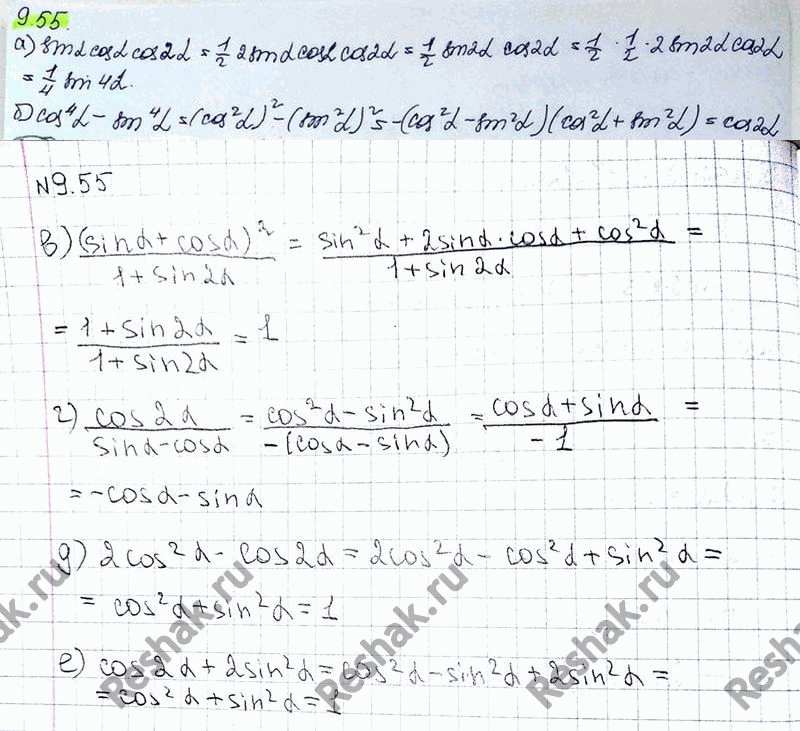 9.55.
а) sinα cosα cos2α = 1/2 2sinα cosα cos2α = 1/2 sin2α cos2α = 1/2 · 1/2 · 2 sin2α cos2α
= 1/4 sin 4α.
б) cos⁴α - sin⁴α = (cos²α)² - (sin²α)² = -(cos²α - sin²α)(cos²α + sin²α) = cos2α
N9.55
в) (sinα + cosα)² / 1 + sin2α = sin²α + 2sinα · cosα + cos²α / 1 + sin2α =
= 1 + sin2α / 1 + sin2α = 1
г) cos2α / sinα - cosα = cos²α - sin²α / -(cosα - sinα) = cosα + sinα / -1 =
= -cosα - sinα
д) 2cos²α - cos2α = 2cos²α - cos²α + sin²α =
= cos²α + sin²α = 1
е) cos2α + 2sin²α = cos²α - sin²α + 2sin²α =
= cos²α + sin²α = 1
Reshak.ru
Reshak.ru
Reshak.ru
Reshak.ru
Reshak.ru